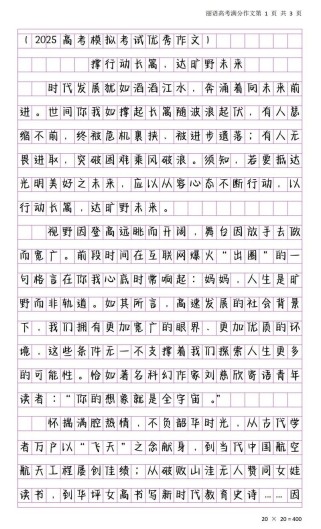 丽语高考满分作文第 1 页 共 3 页
（2025高考模拟考试优秀作文）
撑行动长篙，达旷野未来
时代发展就如滔滔江水，奔涌着向未来前
进。世间你我如撑起长篙随波浪起伏，有人瑟
缩不前，终被危机裹挟，被进步遗落；有人无
畏进取，突破困难乘风破浪。须知，若要抵达
光明美好之未来，应以从容心态不断行动，以
行动长篙，达旷野未来。
视野因登高远眺而开阔，舞台因放手去做
而宽广。前段时间在互联网爆火“出圈”的一
句格言在你我心扉时常响起：妈妈，人生是旷
野而非轨道。如其所言，高速发展的社会背景
下，我们拥有更加宽广的眼界，更加优质的环
境，这些条件无一不支撑着我们探索人生更多
的可能性。恰如著名科幻作家刘慈欣寄语青年
读者：“你的想象就是全宇宙。”
怀揣满腔热情，不负韶华时光，从古代学
者万户以“飞天”之念献身，到当代中国航空
航天工程屡创佳绩；从破败山洼无人赞同女娃
读书，到华坪女高书写新时代教育史诗……因
20 × 20=400